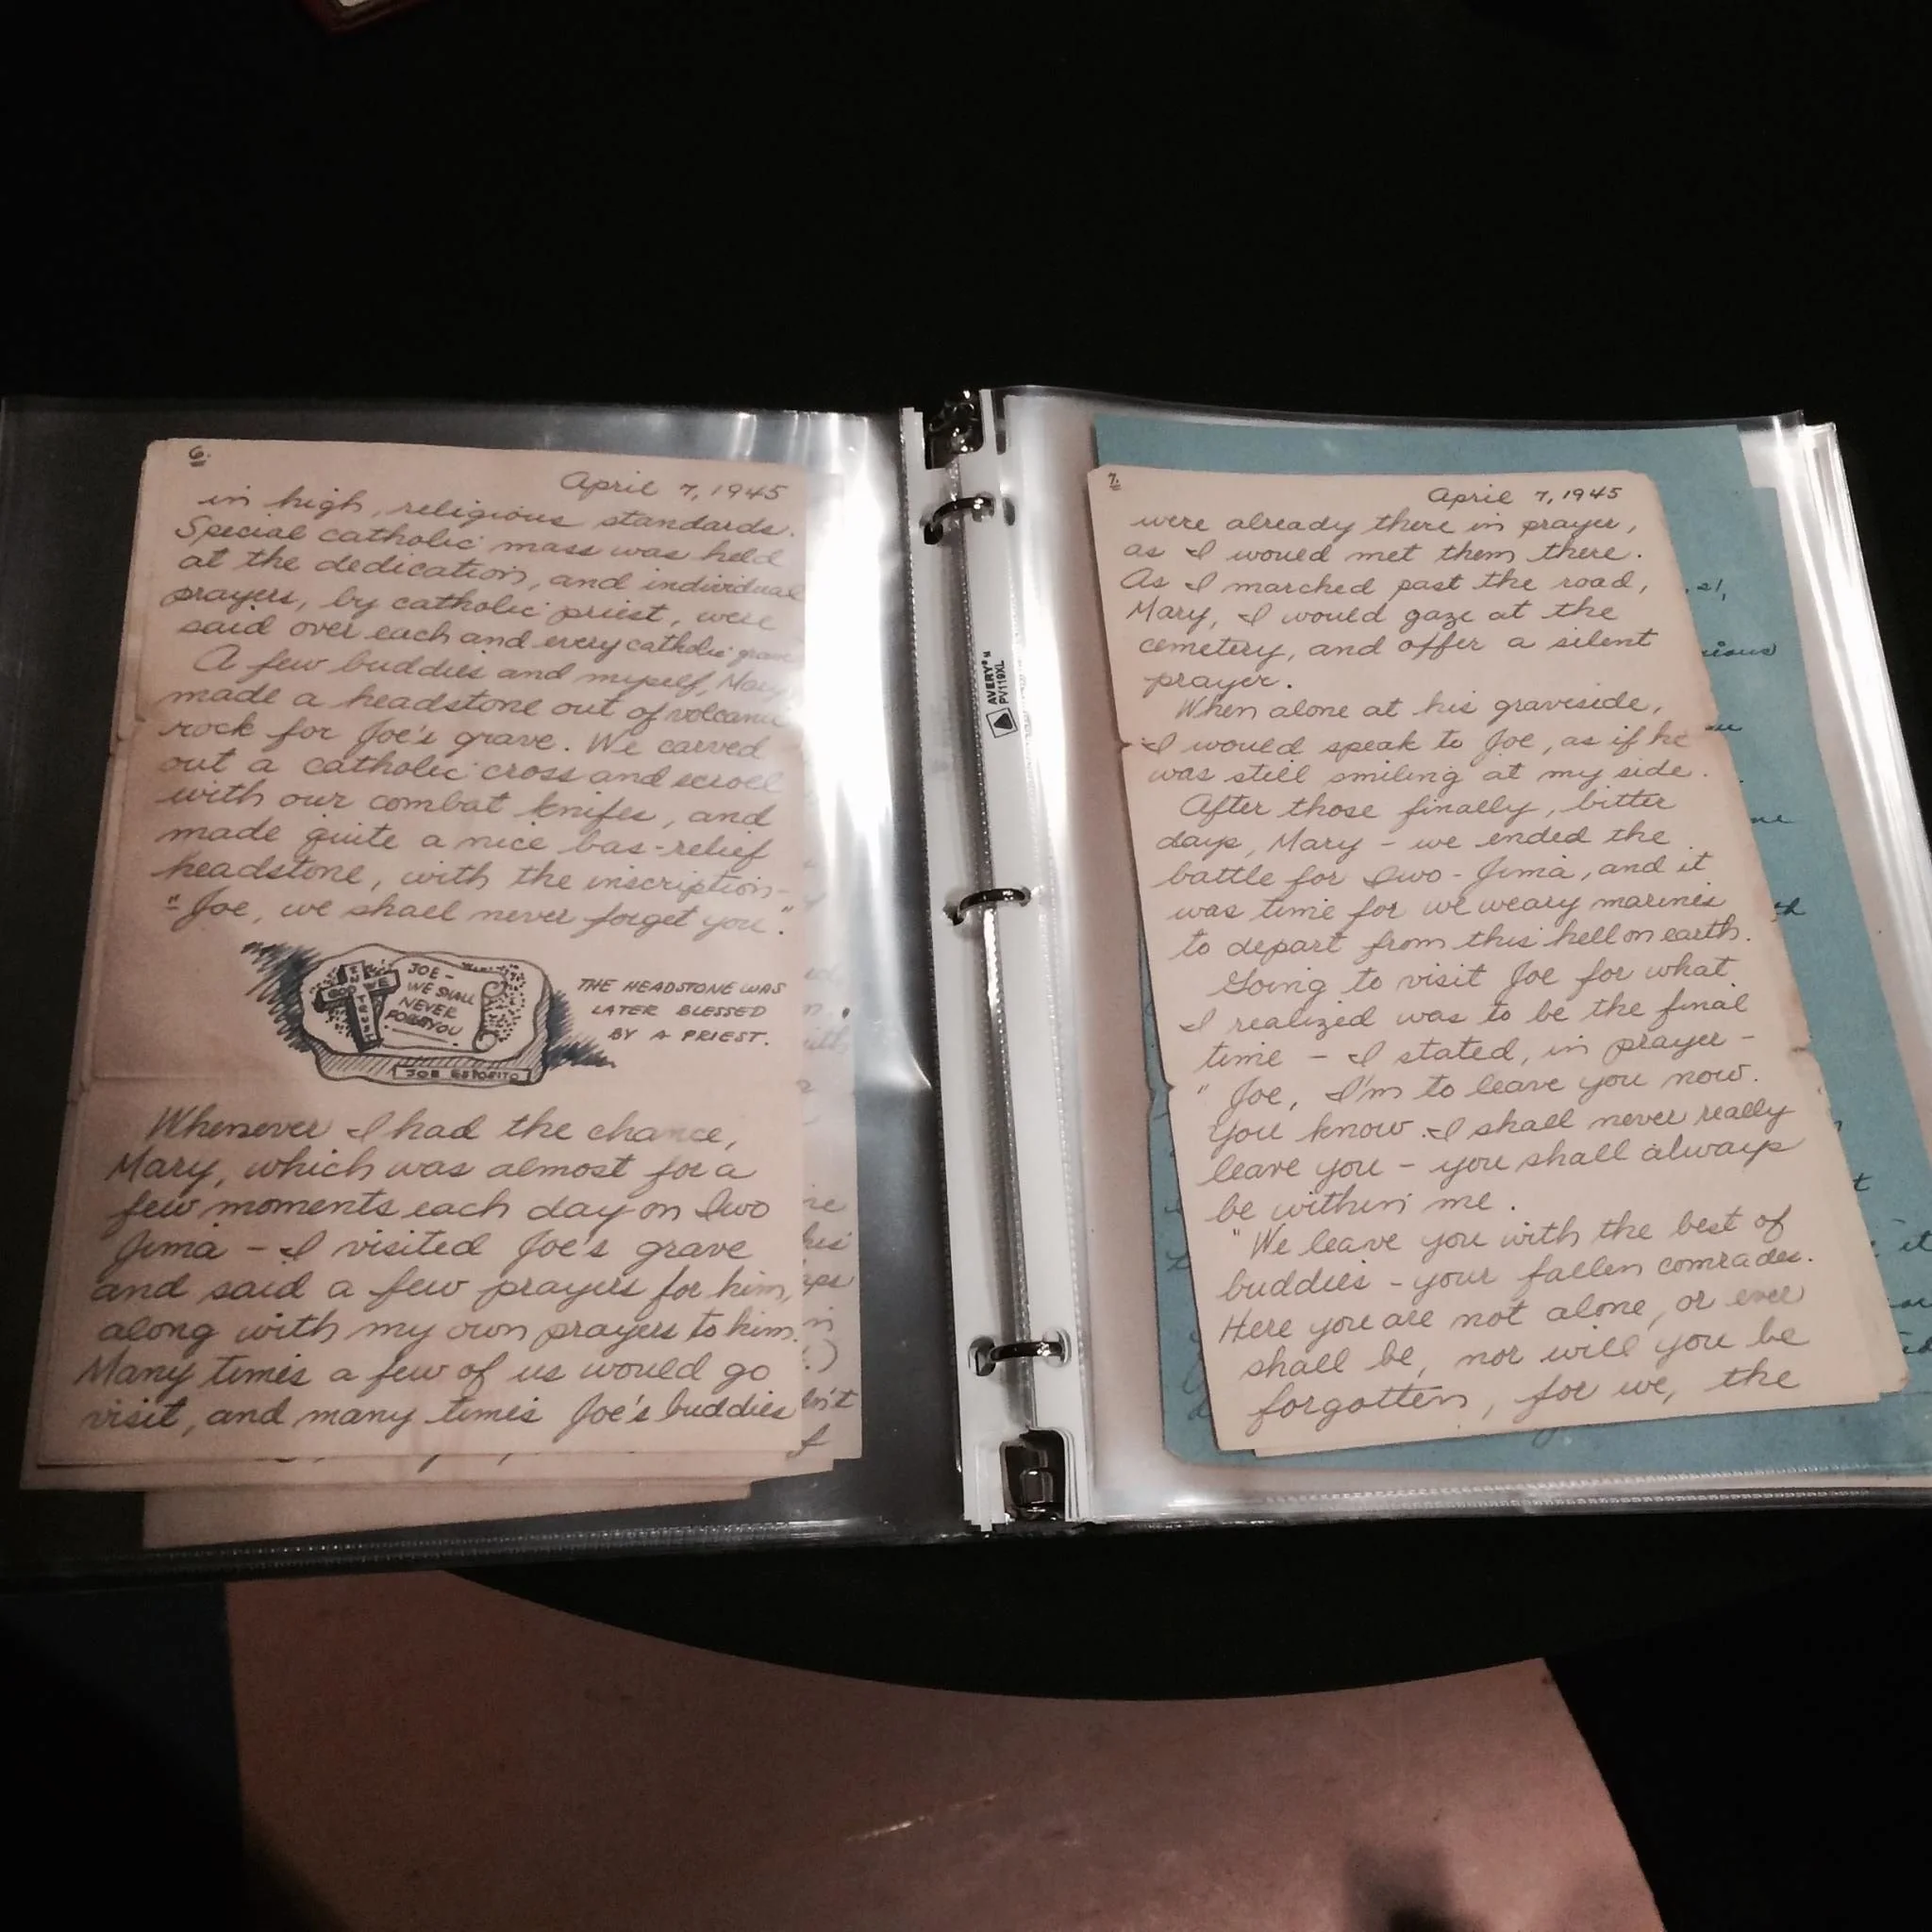 6.
April 7, 1945
in high, religious standards.
Special catholic mass was held
at the dedication, and individual
prayers, by catholic priest, were
said over each and every catholic grave
A few buddies and myself, Mary
made a headstone out of volcanic
rock for Joe's grave. We carved
out a catholic cross and scroll
with our combat knifes, and
made quite a nice bas-relief
headstone, with the inscription-
"Joe, we shall never forget you."
IN
GOD WE
TRUST
JOE -
WE SHALL
NEVER
FORGET YOU
JOE ESPOSITO
THE HEADSTONE WAS
LATER BLESSED
BY A PRIEST.
Whenever I had the chance,
Mary, which was almost for a
few moments each day on Iwo
Jima - I visited Joe's grave
and said a few prayers for him,
along with my own prayers to him.
Many times a few of us would go
visit, and many times Joe's buddies
AVERY®
PV119XL
7.
April 7, 1945
were already there in prayer,
as I would met them there.
As I marched past the road,
Mary, I would gaze at the
cemetery, and offer a silent
prayer.
When alone at his graveside,
I would speak to Joe, as if he
was still smiling at my side.
After those finally, bitter
days, Mary - we ended the
battle for Iwo-Jima, and it
was time for we weary marines
to depart from this hell on earth.
Going to visit Joe for what
I realized was to be the final
time - I stated, in prayer -
"Joe, I'm to leave you now.
You know I shall never really
leave you - you shall always
be within me.
"We leave you with the best of
buddies - your fallen comrades.
Here you are not alone, or ever
shall be, nor will you be
forgotten, for we, the